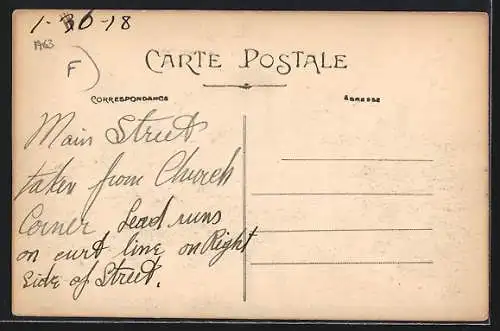 1-30-18
A63
F)
CARTE POSTALE
CORRESPONDANCE
ADRESSE
Main Street
taken from Church
Corner Lead runs
on curt line on Right
side of Street.